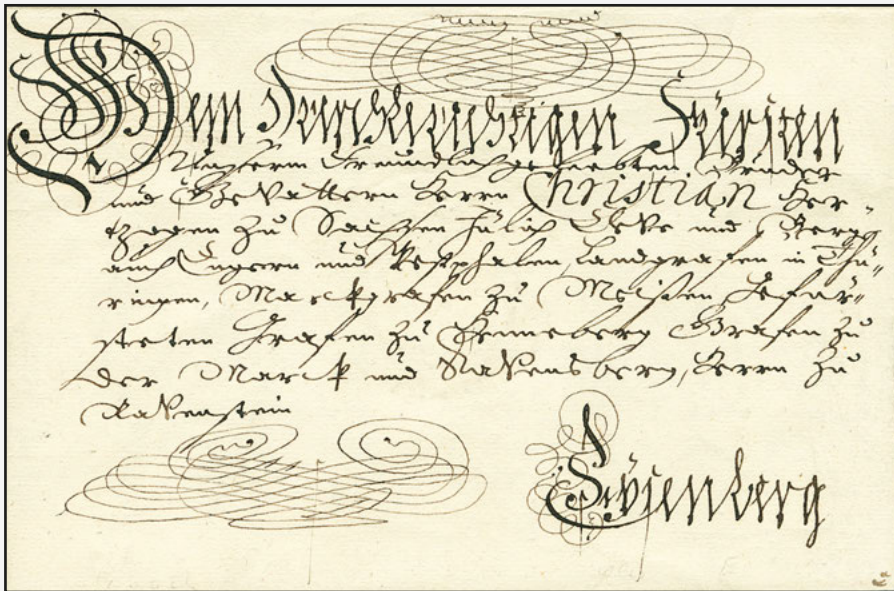 Dem Durchleuchtigen Fürsten
Unserm Freundlich geliebten Bruder
und Gevattern Herrn Christian Her-
tzogen zu Sachsen Jülich Cleve und Berg
auch Engern und Westphalen, Landgrafen in Thü-
ringen, Marckgrafen zu Meißen, Gefür-
steten Grafen zu Henneberg Grafen zu
der Marck und Ravensberg, Herrn zu
Ravenstein
Eysenberg